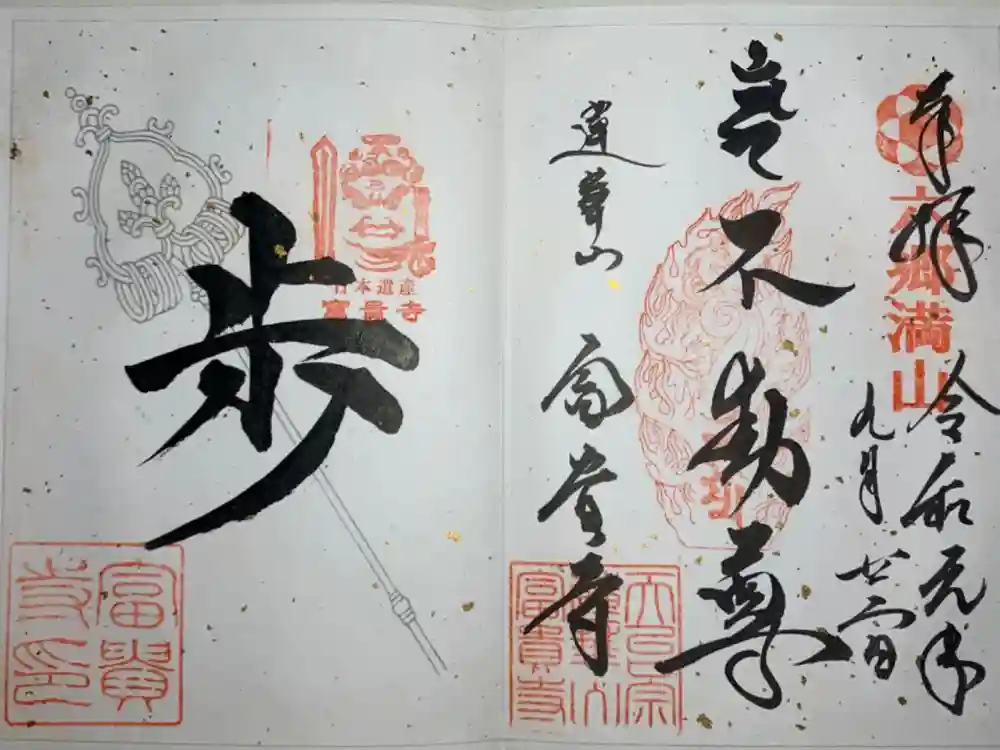 奉拝
六郷満山
令和元年
九月廿二日
不動尊
蓮華山 富貴寺
天台宗
蓮華山
富貴寺
日本遺産
富貴寺
歩
富貴
寺印